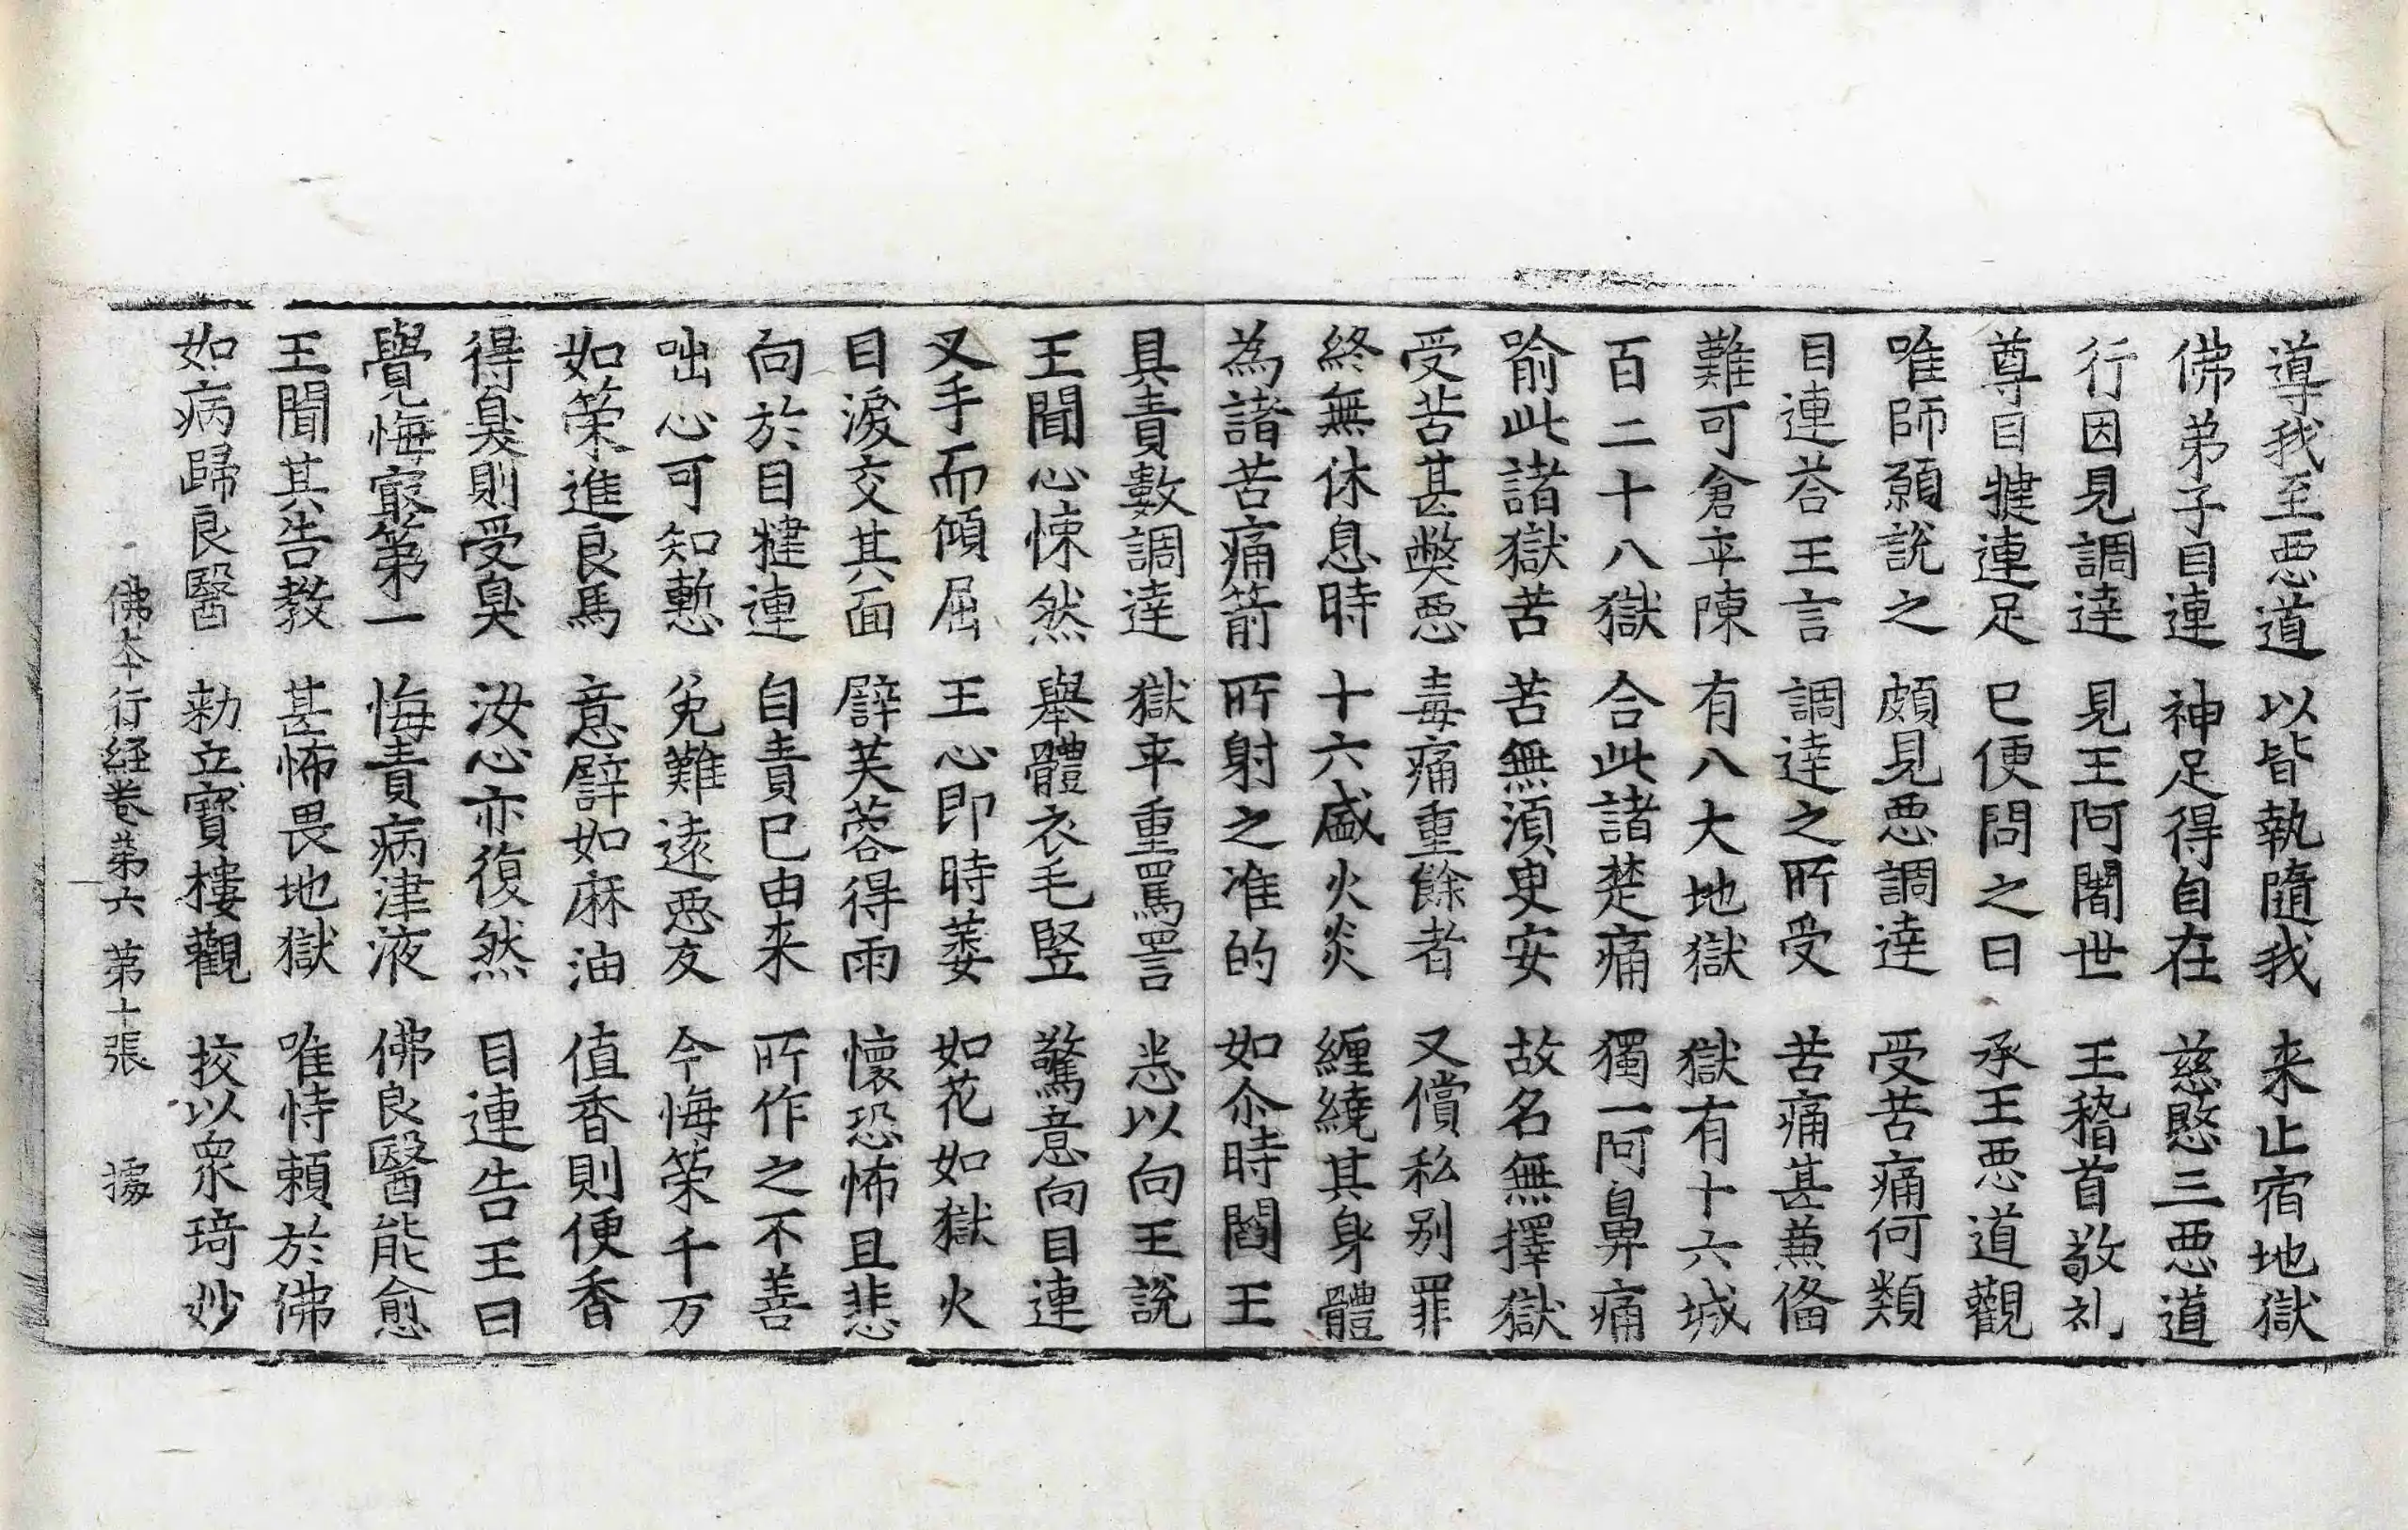 導我至惡道　以皆執隨我　来止宿地獄
佛弟子目連　神足得自在　慈愍三惡道
行因見調達　見王阿闍世　王稽首敬礼
尊目揵連足　已便問之曰　承王惡道觀
唯師願說之　頗見惡調達　受苦痛何類
目連荅王言　調達之所受　苦痛甚兼俻
難可倉卒陳　有八大地獄　獄有十六城
百二十八獄　合此諸楚痛　獨一阿鼻痛
喻此諸獄苦　苦無湏臾安　故名無擇獄
受苦甚獘惡　毒痛重餘者　又償私别罪
終無休息時　十六盛火炎　纒繞其身體
為諸苦痛箭　所射之准的　如尒時閻王
具責數調達　獄卒重罵詈　恙以向王說
王聞心悚然　舉體衣毛竪　驚意向目連
叉手而傾屈　王心即時萎　如花如獄火
目淚交其面　譬芙蓉得雨　懷恐怖且悲
向於目揵連　自責已由来　所作之不善
咄心可知慙　免難遠惡友　今悔榮千万
如榮進良馬　意譬如麻油　值香則便香
得臭則受臭　汝心亦復然　目連告王曰
覺悔㝡第一　悔責病津液　佛良醫能愈
王聞其告教　甚怖畏地獄　唯恃頼於佛
如病歸良醫　勑立寶樓觀　挍以衆琦妙
佛本行経卷苐六　苐十張　據